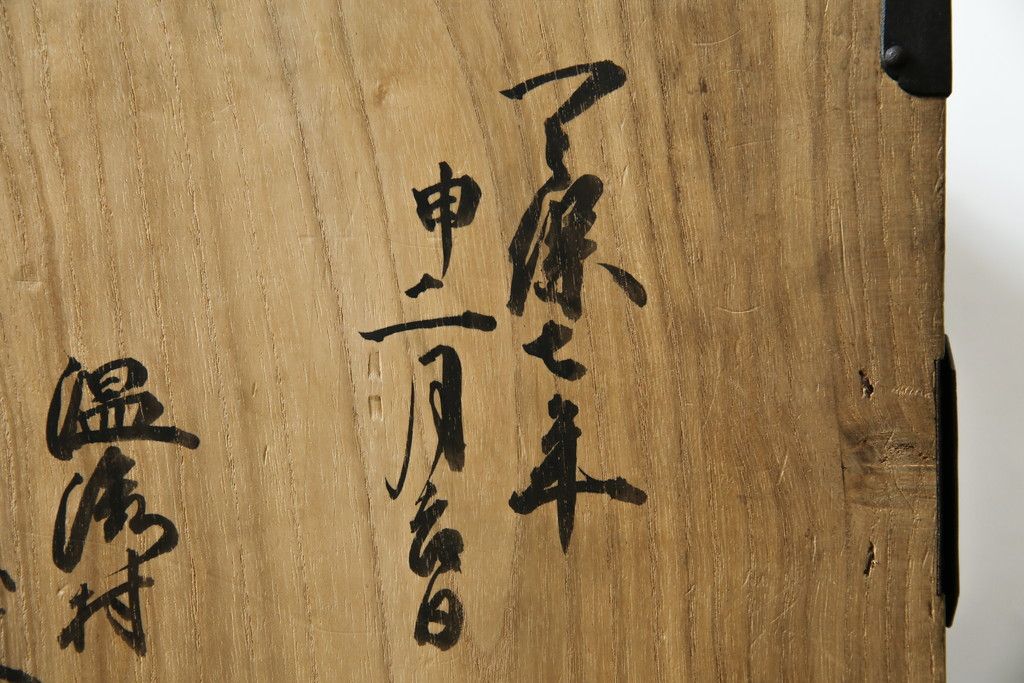 天保七年
申二月吉日
温湯村